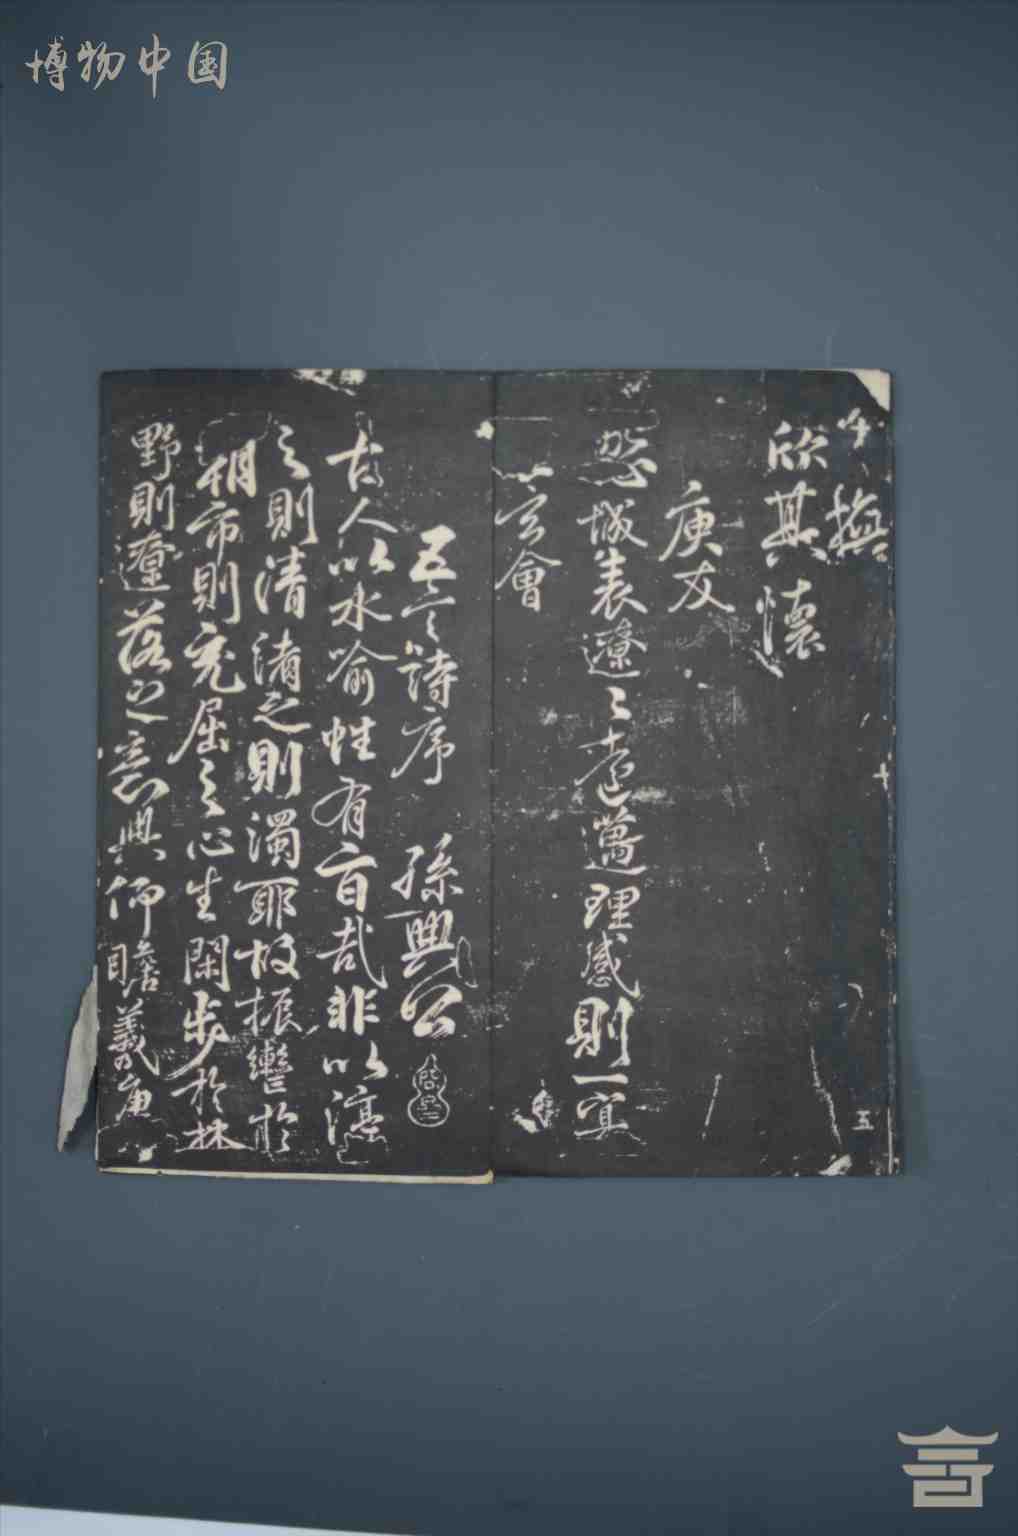 博物中国
撫
欣其懷
庚友
城表遼〻遠邁理感則一冥
玄會
五言詩序 孫興公
古人以水喻性有旨哉非以渟
之則清淆之則濁耶故振轡於
朝市則充屈之心生閑步於林
野則遼落之意興仰瞻羲唐
五